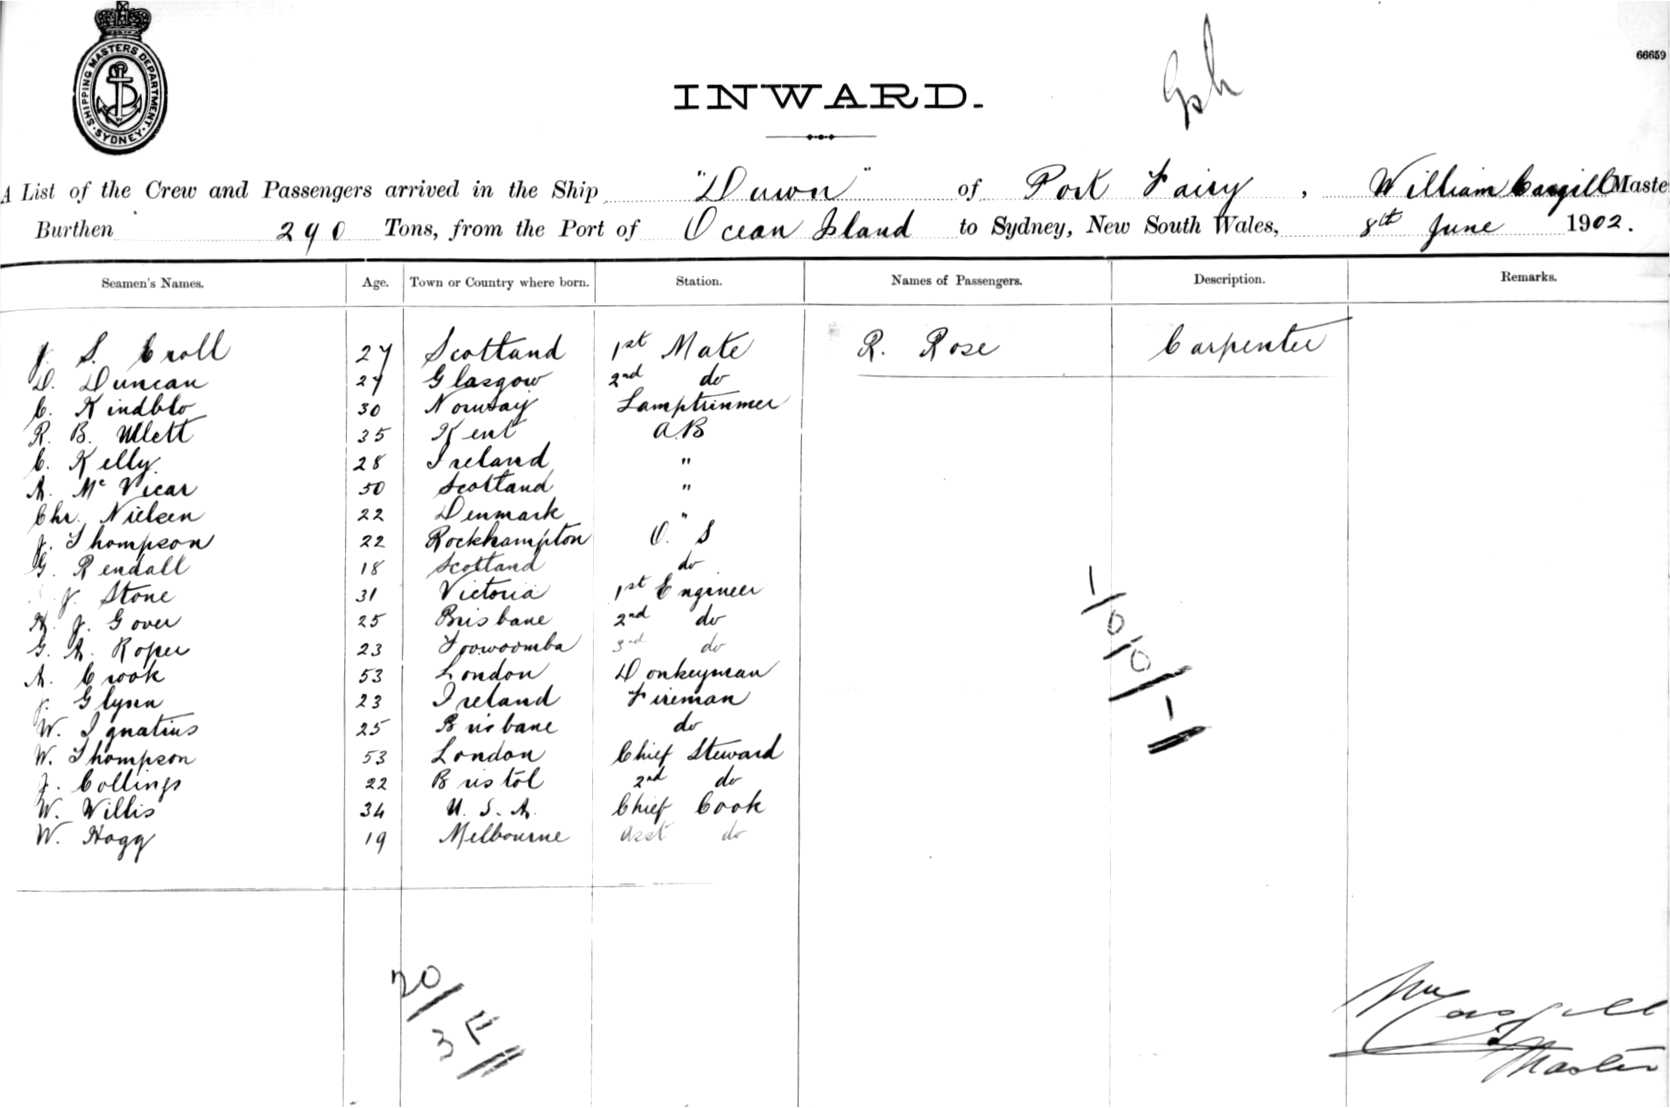 SHIPPING MASTERS DEPARTMENT
SYDNEY
66659
INWARD.
A List of the Crew and Passengers arrived in the Ship "Dawn" of Port Fairy, William Cargill Maste
Burthen 290 Tons, from the Port of Ocean Island to Sydney, New South Wales, 8th June 1902.
Seamen's Names. Age. Town or Country where born. Station. Names of Passengers. Description. Remarks.
J. S. Croll 27 Scotland 1st Mate R. Rose Carpenter
D. Duncan 27 Glasgow 2nd do
C. Kindblo 30 Norway Lamptrimmer
R. B. Ullett 35 Kent A.B
C. Kelly. 28 Ireland "
A. Mc Vicar 50 Scotland "
Chr. Nielsen 22 Denmark "
J. Thompson 22 Rockhampton O. S
G. Rendall 18 Scotland do
J. Stone 31 Victoria 1st Engineer
H. J. Gover 25 Brisbane 2nd do
G. A. Roper 23 Toowoomba 3rd do
A. Crook 53 London Donkeyman
J. Glynn 23 Ireland Fireman
W. Ignatius 25 Brisbane do
W. Thompson 53 London Chief Steward
J. Collings 22 Bristol 2nd do
W. Willis 34 U. S. A. Chief Cook
W. Hogg 19 Melbourne Asst do
1/0/0/1
20/
Wm Cargill
Master